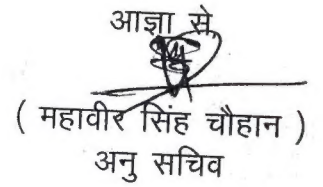 आज्ञा से,
( महावीर सिंह चौहान )
अनु सचिव